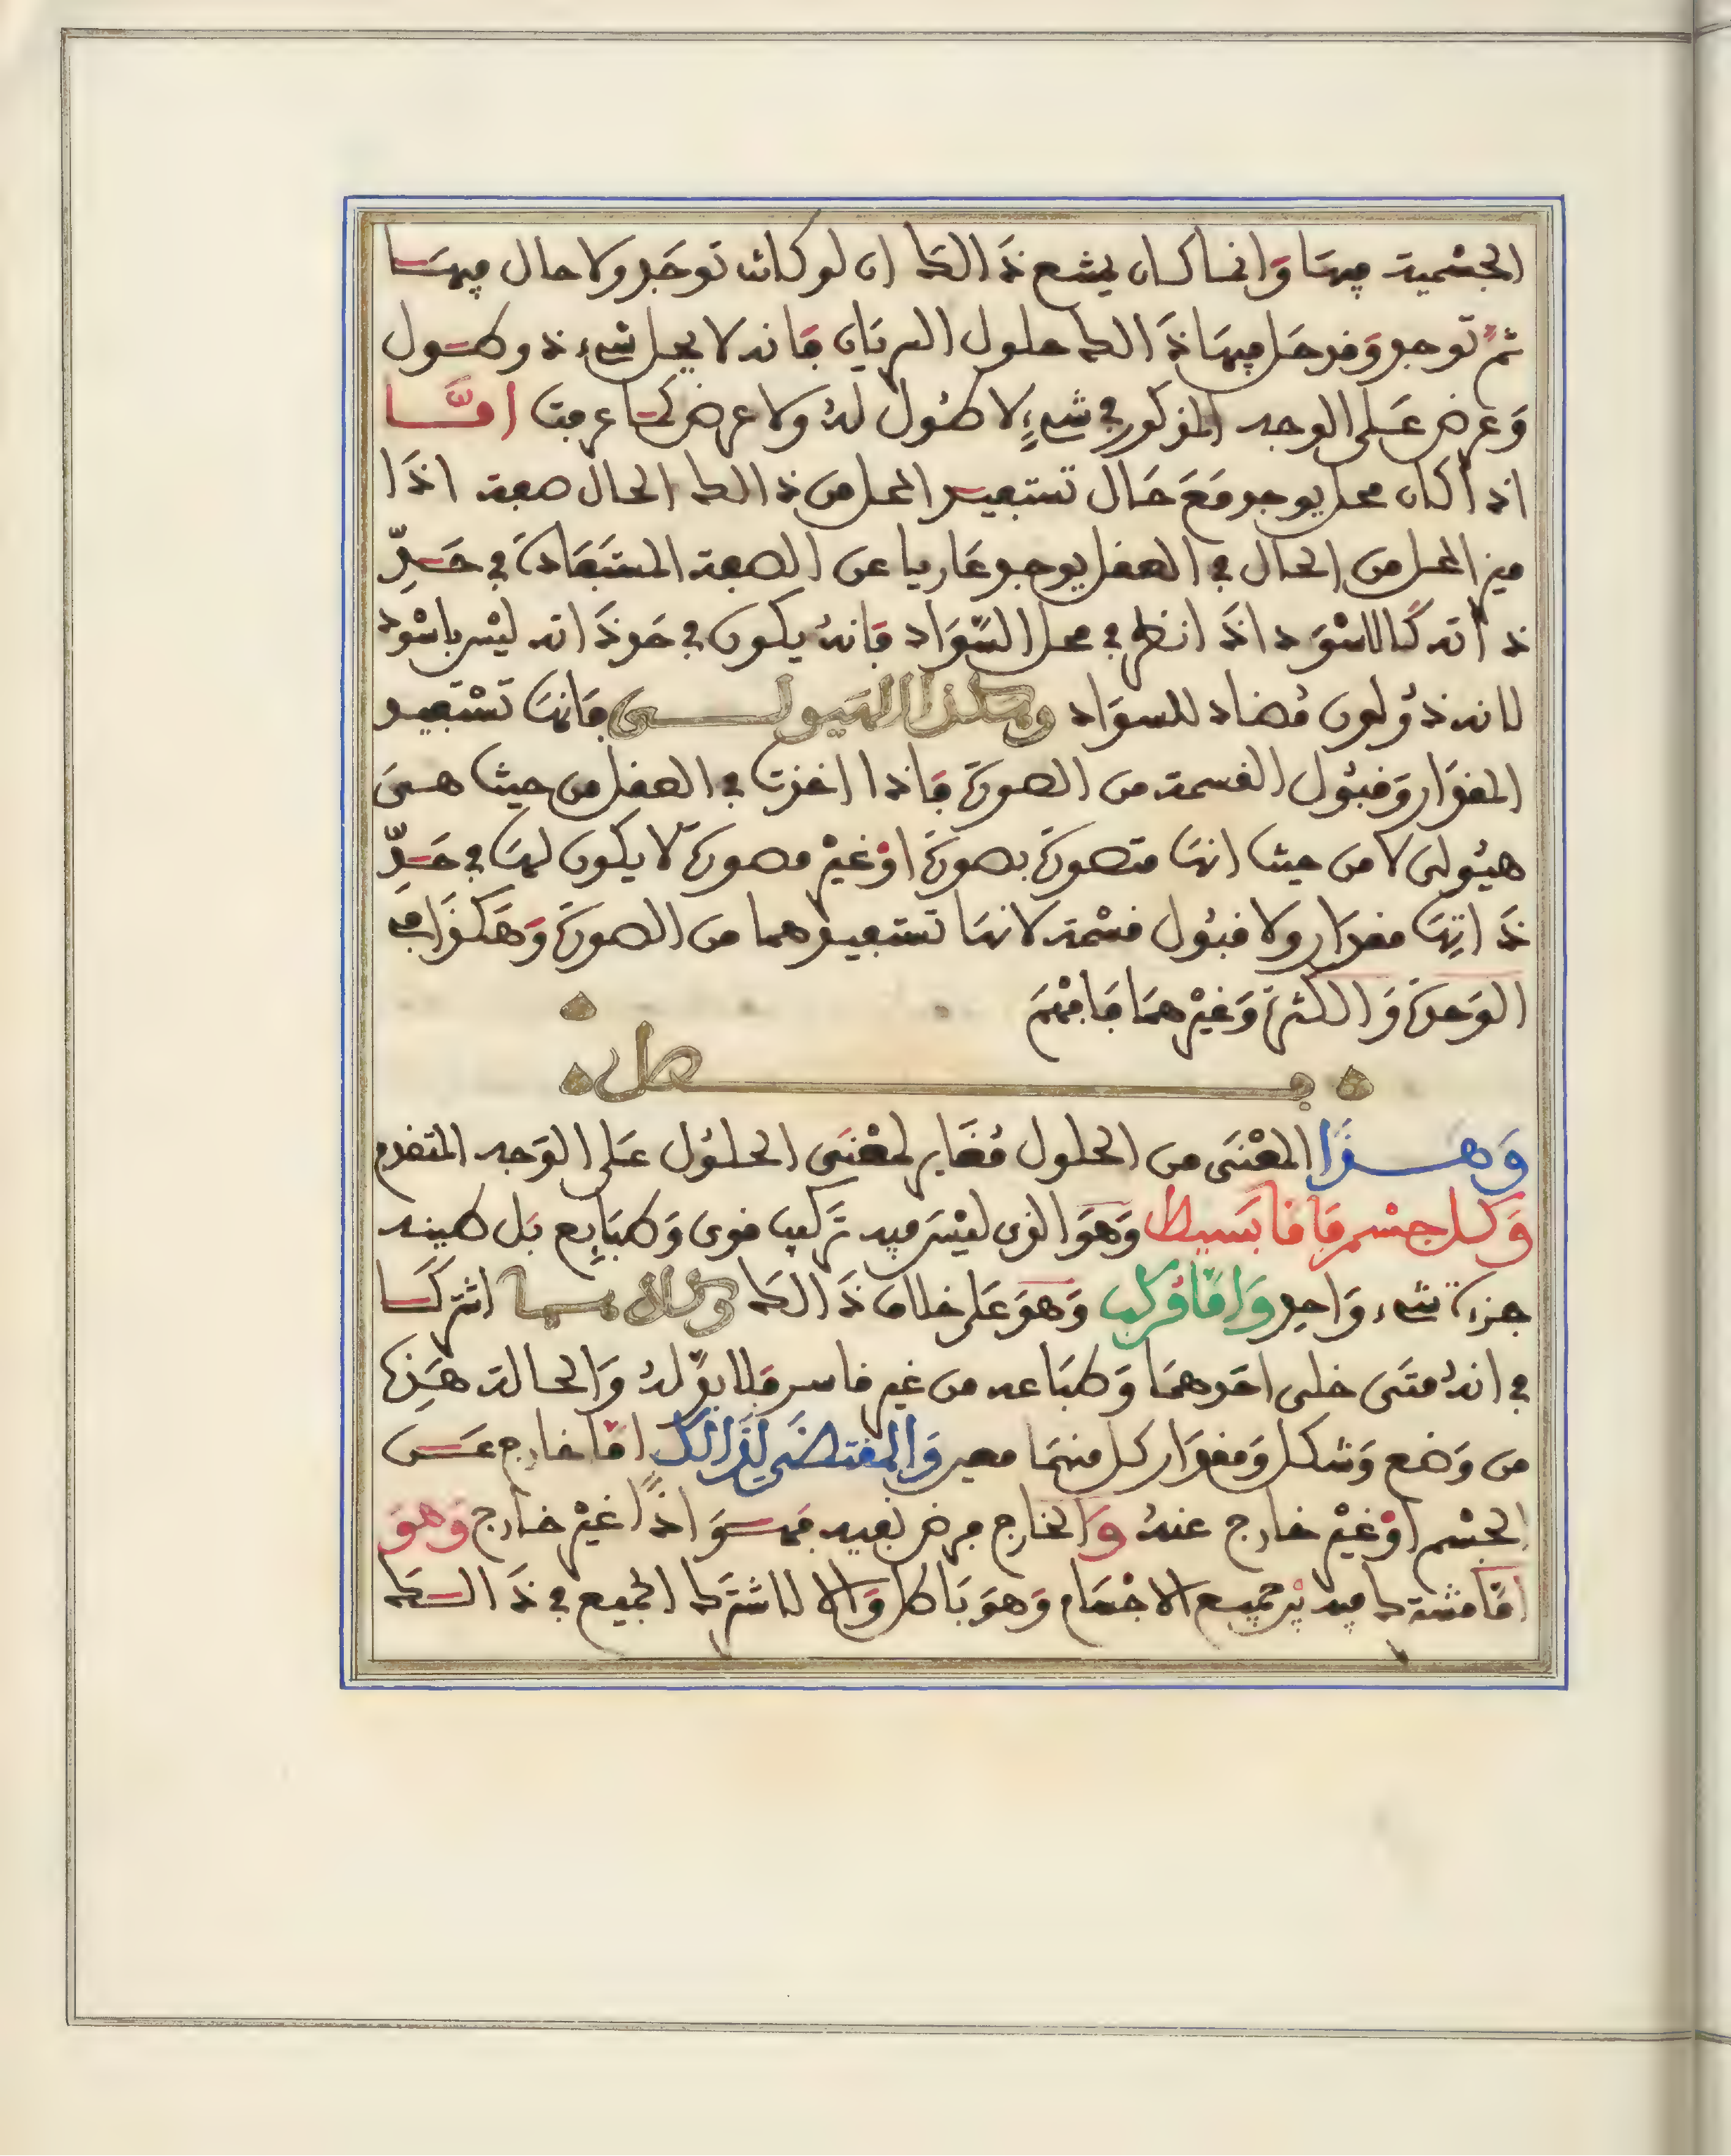 الجسمية فيها وانما كان يمتنع ذالك ان لو كانت توجد ولا حال فيها
ثم توجد وقد حل فيها ذالك حلول السريان فانه لا يحل شيء ذو طول
وعرض على الوجه المذكور في شيء لا طول له ولا عرض كما عرفت اما
اذا كان محل يوجد مع حال تستفيد المحل من ذالك الحال صفة اذا
ميز المحل من الحال في العقل يوجد عاريا عن الصفة المستفادة في حدّ
ذاته كالاسود اذا نظر في محل السّواد فانه يكون في حد ذاته ليس باسود
لانه ذو لون مضاد للسواد وهكذا الهيولى فانها تستفيد
المقدار وقبول القسمة من الصورة فاذا اخذت في العقل من حيث هى
هيولى لا من حيث انها متصورة بصورة او غير مصورة لا يكون لها في حدّ
ذاتها مقدار ولا قبول قسمة لانها تستفيدهما من الصورة وهكذا في
الوحدة والكثرة وغيرهما فافهم
فصل
وهذا المعنى من الحلول مغاير لمعنى الحلول على الوجه المتقدم
وكل جسم فاما بسيط وهو الذى ليس فيه تركيب قوى وطبايع بل طبيعة
جزءة شيء واحد واما مركب وهو على خلاف ذالك وكلاهما اشتركا
في انه متى خلى احدهما وطباعه من غير قاسر فلا بدّ له والحالة هذه
من وضع وشكل ومقدار كل منهما معين والمقتضى لذالك اما خارج عن
الجسم او غير خارج عنه والخارج فرض نفيه فهو اذًا غير خارج وهو
امّا مشترك فيه جميع الاجسام وهو باطل والا لاشترك الجميع في ذالك